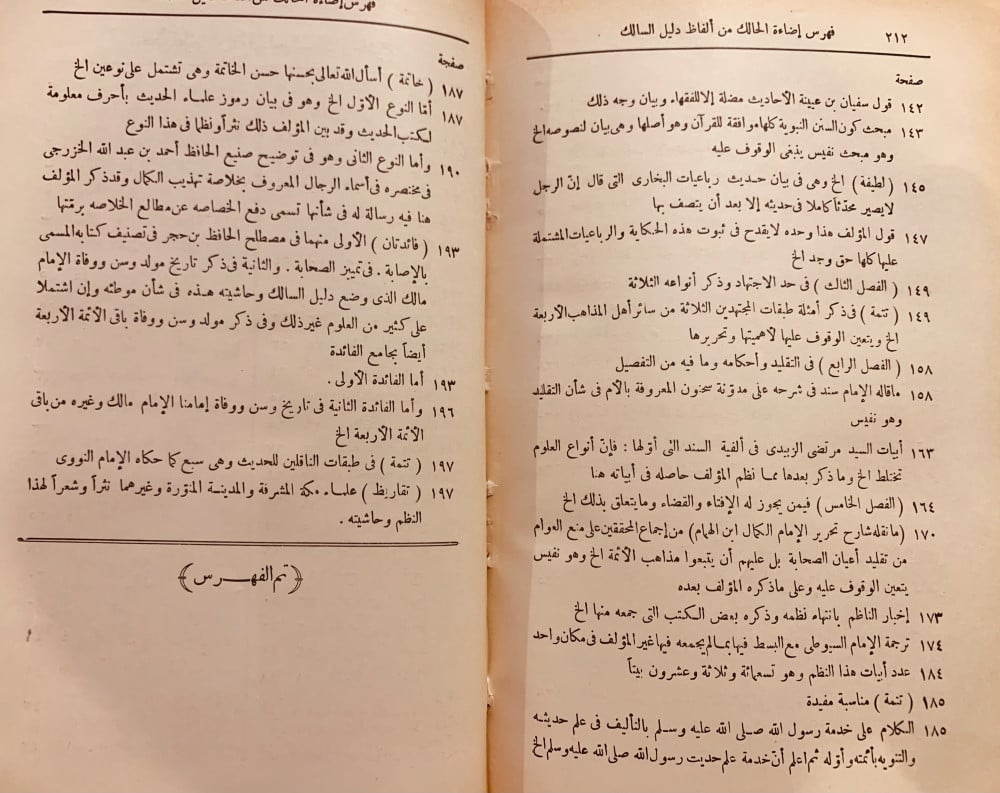 ٢١٢ فهرس إضاءة الحالك من ألفاظ دليل السالك
صفحة
١٤٢ قول سفيان بن عيينة الأحاديث مضلة إلا للفقهاء وبيان وجه ذلك
١٤٣ مبحث كون السنن النبوية كلها موافقة للقرآن وهو أصلها وهى بيان لنصوصه الخ
وهو مبحث نفيس ينبغى الوقوف عليه
١٤٥ (لطيفة) الخ وهى فى بيان حديث رباعيات البخارى التى قال إنّ الرجل
لا يصير محدّثاً كاملا فى حديثه إلا بعد أن يتصف بها
١٤٧ قول المؤلف هذا وحده لا يقدح فى ثبوت هذه الحكاية والرباعيات المشتملة
عليها كلها حق وجد الخ
١٤٩ (الفصل الثالث) فى حد الاجتهاد وذكر أنواعه الثلاثة
١٤٩ (تتمة) فى ذكر أمثلة طبقات المجتهدين الثلاثة من سائر أهل المذاهب الأربعة
الخ ويتعين الوقوف عليها لأهميتها وتحريرها
١٥٨ (الفصل الرابع) فى التقليد وأحكامه وما فيه من التفصيل
١٥٨ ما قاله الإمام سند فى شرحه على مدوّنة سحنون المعروفة بالأم فى شأن التقليد
وهو نفيس
١٦٣ أبيات السيد مرتضى الزبيدى فى ألفية السند التى أوّلها : فإنّ أنواع العلوم
تختلط الخ وما ذكر بعدها مما نظم المؤلف حاصله فى أبياته هنا
١٦٤ (الفصل الخامس) فيمن يجوز له الإفتاء والقضاء وما يتعلق بذلك الخ
١٧٠ (ما نقله شارح تحرير الإمام الكمال ابن الهمام) من إجماع المحققين على منع العوام
من تقليد أعيان الصحابة بل عليهم أن يتبعوا مذاهب الأئمة الخ وهو نفيس
يتعين الوقوف عليه وعلى ما ذكره المؤلف بعده
١٧٣ إخبار الناظم بانتهاء نظمه وذكره بعض الكتب التى جمعه منها الخ
١٧٤ ترجمة الإمام السيوطى مع البسط فيها بما لم يجمعه فيها غير المؤلف فى مكان واحد
١٨٤ عدد أبيات هذا النظم وهو تسعمائة وثلاثة وعشرون بيتاً
١٨٥ (تتمة) مناسبة مفيدة
١٨٥ الكلام على خدمة رسول الله صلى الله عليه وسلم بالتأليف فى علم حديثه
والتنويه بأئمته وأوّله ثم اعلم أنّ خدمة علم حديث رسول الله صلى الله عليه وسلم الخ
فهرس إضاءة الحالك من
صفحة
١٨٧ (خاتمة) أسأل الله تعالى بحسنها حسن الخاتمة وهى تشتمل على نوعين الخ
١٨٧ أمّا النوع الأوّل الخ وهو فى بيان رموز علماء الحديث بأحرف معلومة
لكتب الحديث وقد بين المؤلف ذلك نثراً ونظما فى هذا النوع
١٩٠ وأما النوع الثانى وهو فى توضيح صنيع الحافظ أحمد بن عبد الله الخزرجى
فى مختصره فى أسماء الرجال المعروف بخلاصة تهذيب الكمال وقد ذكر المؤلف
هنا فيه رسالة له فى شأنها تسمى دفع الخصاصه عن مطالع الخلاصه برمّتها
١٩٣ (فائدتان) الأولى منهما فى مصطلح الحافظ بن حجر فى تصنيف كتابه المسمى
بالإصابة . فى تمييز الصحابة . والثانية فى ذكر تاريخ مولد وسن ووفاة الإمام
مالك الذى وضع دليل السالك وحاشيته هذه فى شأن موطئه وإن اشتملا
على كثير من العلوم غير ذلك وفى ذكر مولد وسن ووفاة باقى الأئمة الأربعة
أيضاً بجامع الفائدة
١٩٣ أما الفائدة الأولى .
١٩٦ وأما الفائدة الثانية فى تاريخ وسن ووفاة إمامنا الإمام مالك وغيره من باقى
الأئمة الأربعة الخ
١٩٧ (تتمة) فى طبقات الناقلين للحديث وهى سبع كما حكاه الإمام النووى
١٩٧ (تقاريظ) علماء مكة المشرفة والمدينة المنوّرة وغيرهما نثراً وشعراً لهذا
النظم وحاشيته .
(تم الفهرس)